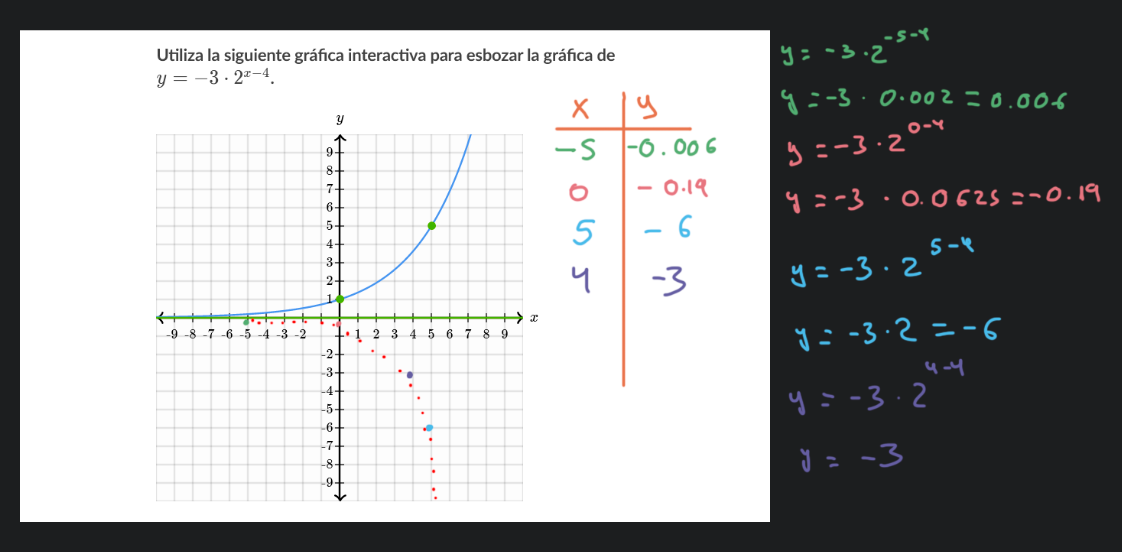 Utiliza la siguiente gráfica interactiva para esbozar la gráfica de
y = −3 · 2^{x−4}.
y
9
8
7
6
5
4
3
2
1
x
-9 -8 -7 -6 -5 -4 -3 -2 1 2 3 4 5 6 7 8 9
-2
-3
-4
-5
-6
-7
-8
-9
x y
-5 -0.006
0 - 0.19
5 - 6
4 -3
y = -3 · 2^{-5-4}
y = -3 · 0.002 = 0.006
y = -3 · 2^{0-4}
y = -3 · 0.0625 = -0.19
y = -3 · 2^{5-4}
y = -3 · 2 = -6
y = -3 · 2^{4-4}
y = -3